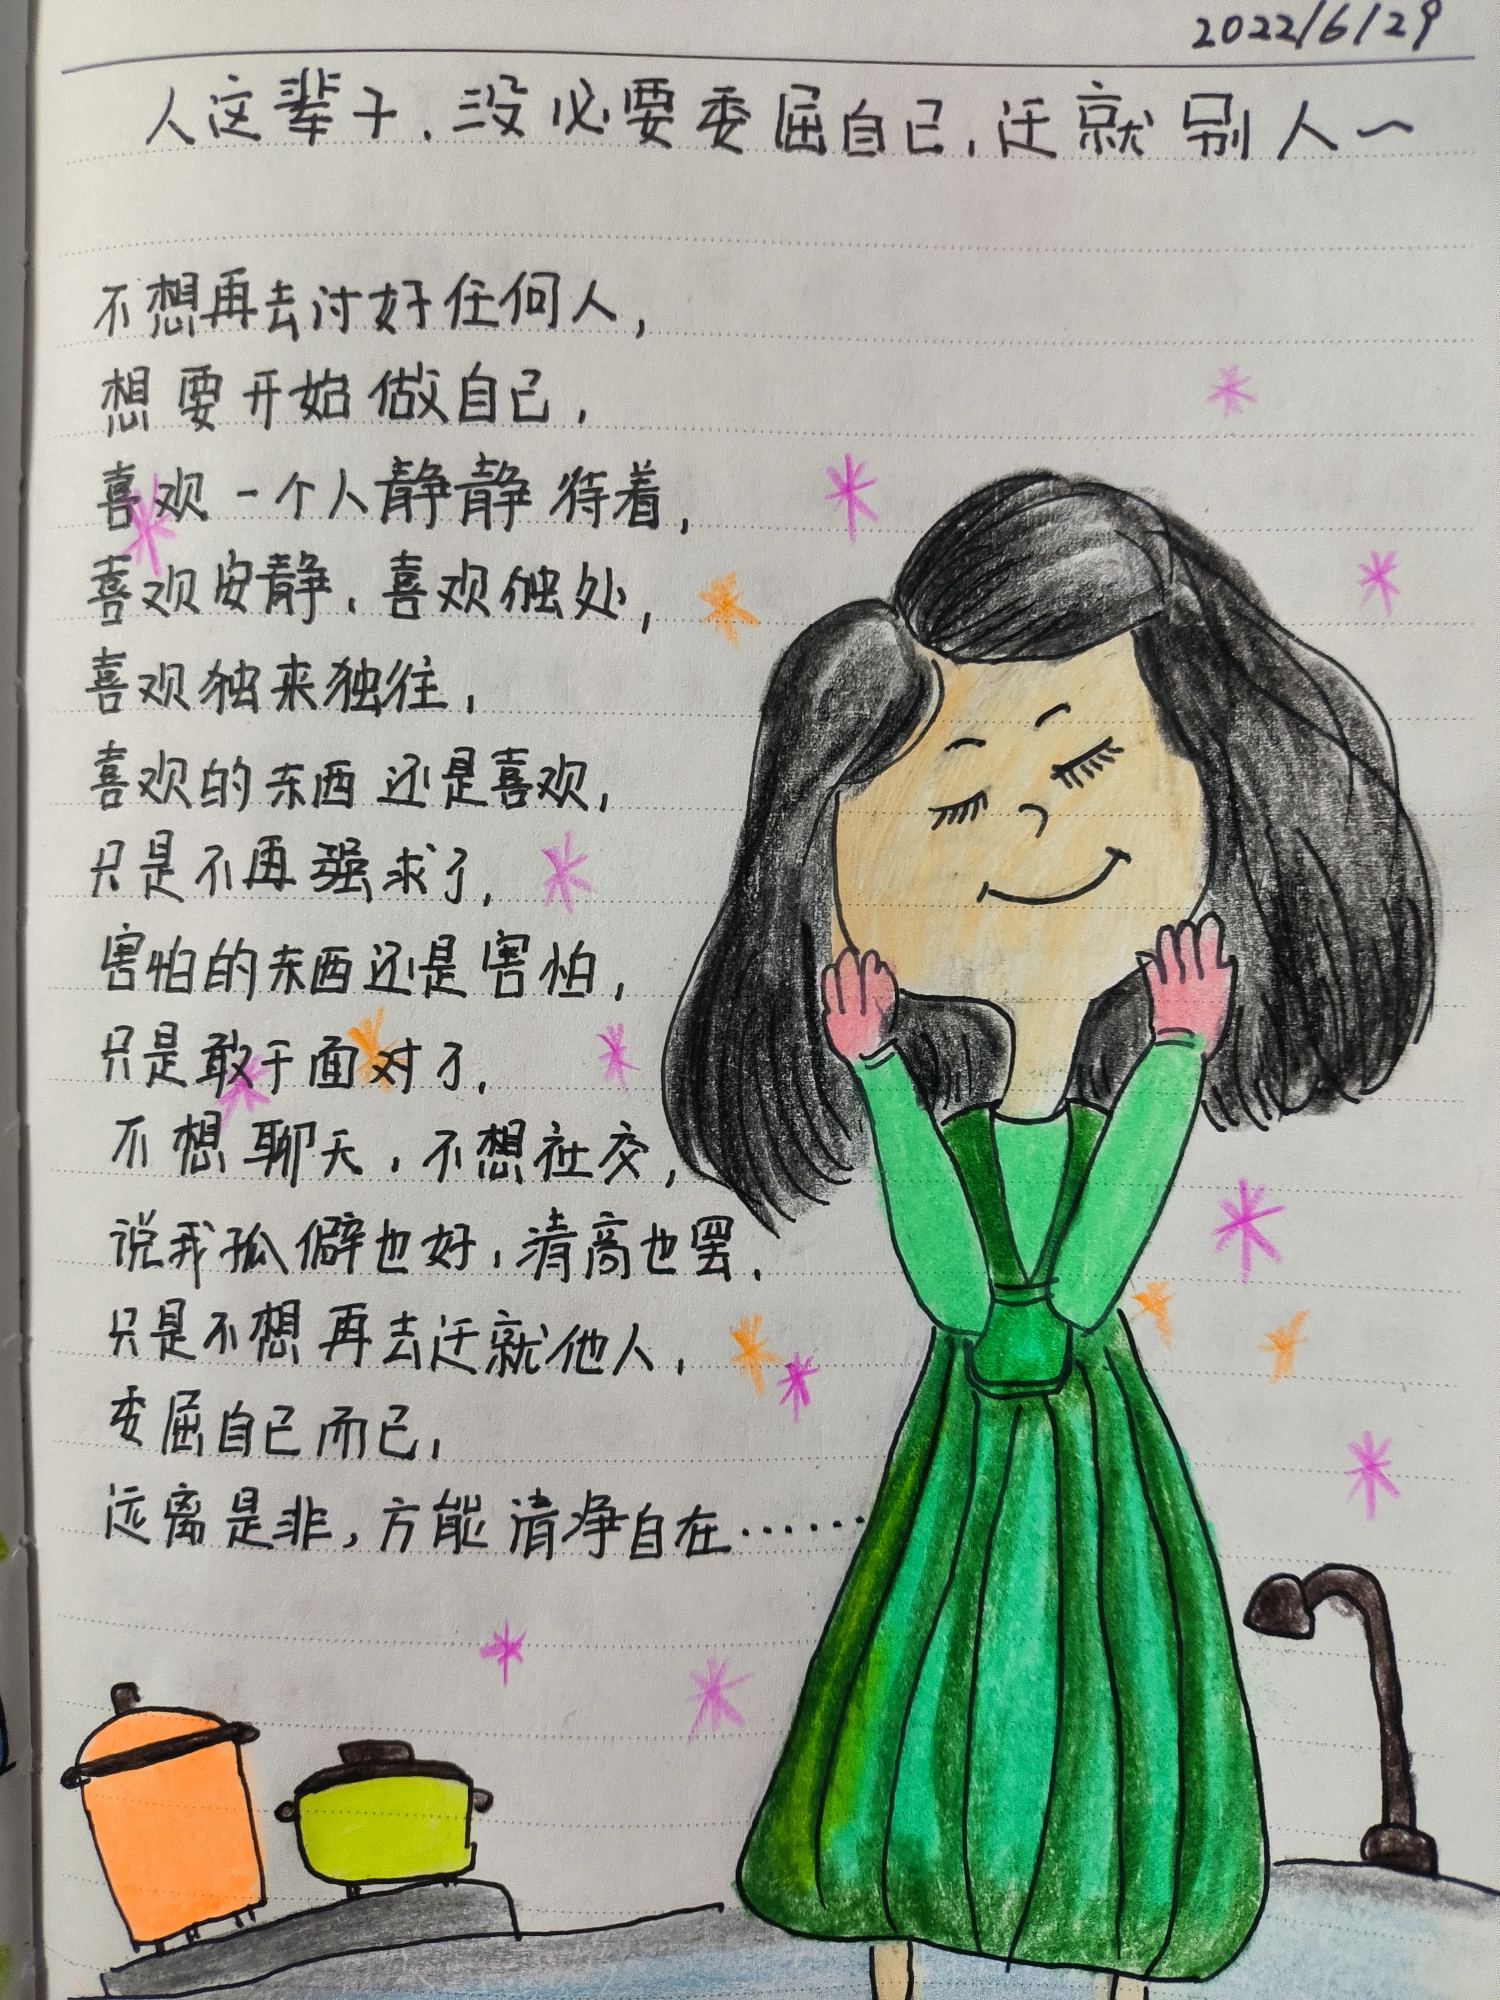 2022/6/29
人这辈子,没必要委屈自己,迁就别人~
不想再去讨好任何人,
想要开始做自己,
喜欢一个人静静待着,
喜欢安静,喜欢独处,
喜欢独来独往,
喜欢的东西还是喜欢,
只是不再强求了,
害怕的东西还是害怕,
只是敢于面对了,
不想聊天,不想社交,
说我孤僻也好,清高也罢,
只是不想再去迁就他人,
委屈自己而已,
远离是非,方能清净自在……